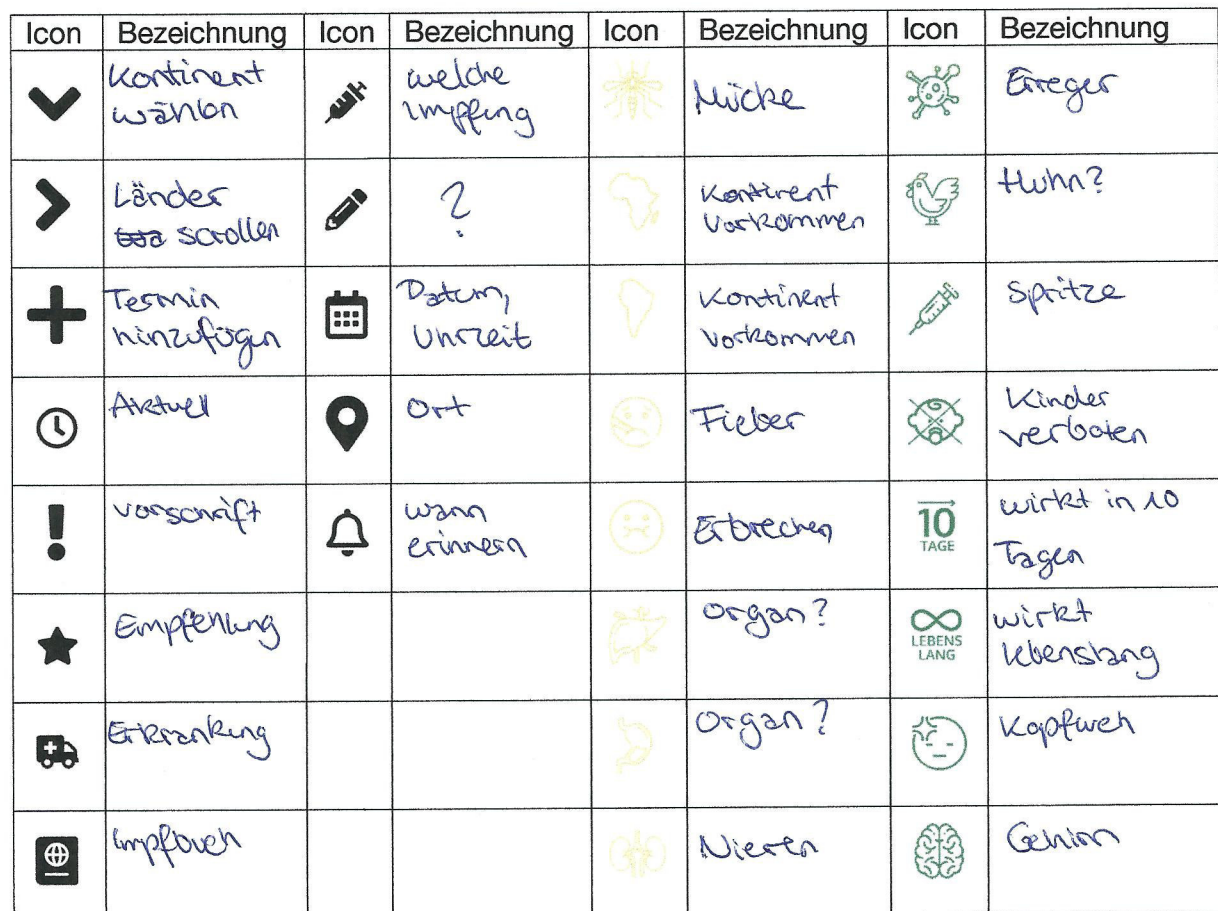 Icon Bezeichnung Icon Bezeichnung Icon Bezeichnung Icon Bezeichnung
Kontinent wählen
welche Impfung
Mücke
Erreger
Länder scrollen
?
Kontinent Vorkommen
Huhn?
Termin hinzufügen
Datum, Uhrzeit
Kontinent vorkommen
Spritze
Aktuell
Ort
Fieber
Kinder verboten
Vorschrift
wann erinnern
Erbrechen
10 TAGE
wirkt in 10 Tagen
Empfehlung
Organ?
LEBENS LANG
wirkt lebenslang
Erkrankung
Organ?
Kopfweh
Impfbuch
Nieren
Gehirn